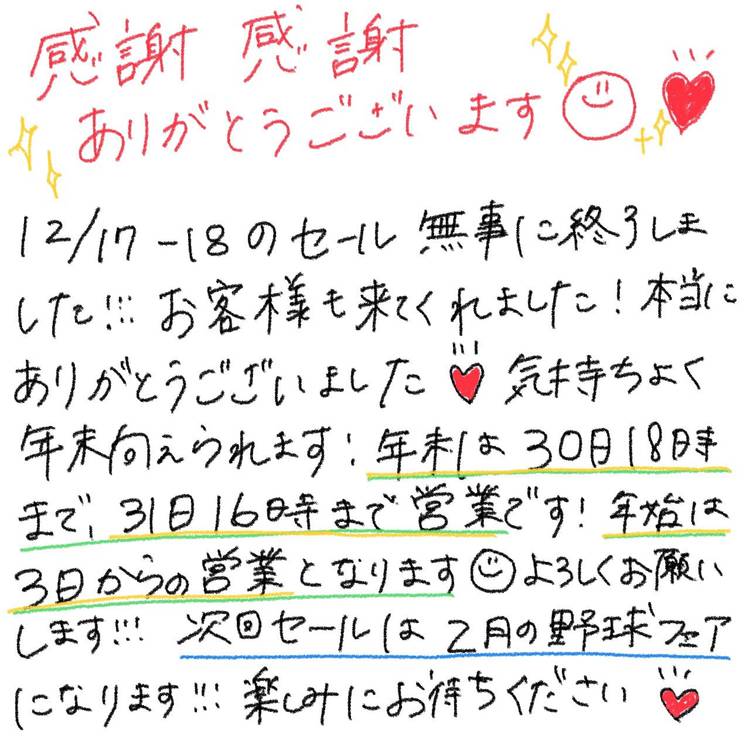 感謝 感謝
ありがとうございます
12/17-18のセール 無事に終了しま
した!!! お客様も来てくれました！本当に
ありがとうございました 気持ちよく
年末向えられます！年末は30日18時
まで、31日16時まで営業です！年始は
3日からの営業となります よろしくお願い
します!!! 次回セールは2月の野球フェア
になります!!! 楽しみにお待ちください